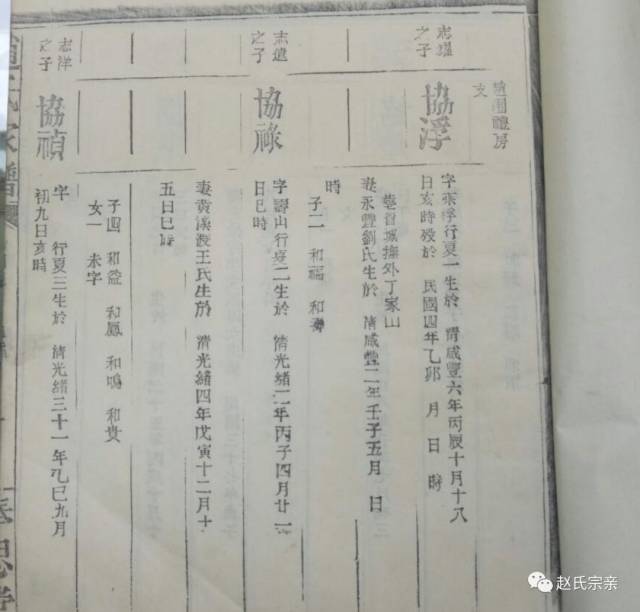 禮房
支
之子
協浮
行夏一生於 清咸豐六年丙辰十月十八
日亥時歿於 民國四年乙卯 月 日 時
葬省城撫外丁家山
妻永豐劉氏生於 清咸豐二年壬子五月 日
時
子二 和福 和壽
志遠
之子
協祿
字壽山行夏二生於 清光緒二年丙子四月廿二
日巳時
妻黃溪渡王氏生於 清光緒四年戊寅十二月十
五日巳時
子四 和鳳 和鳴 和貴
女一 未字
志洋
之子
協禎
字 行夏三生於 清光緒三十一年乙巳九月
初九日亥時
家譜
赵氏宗亲